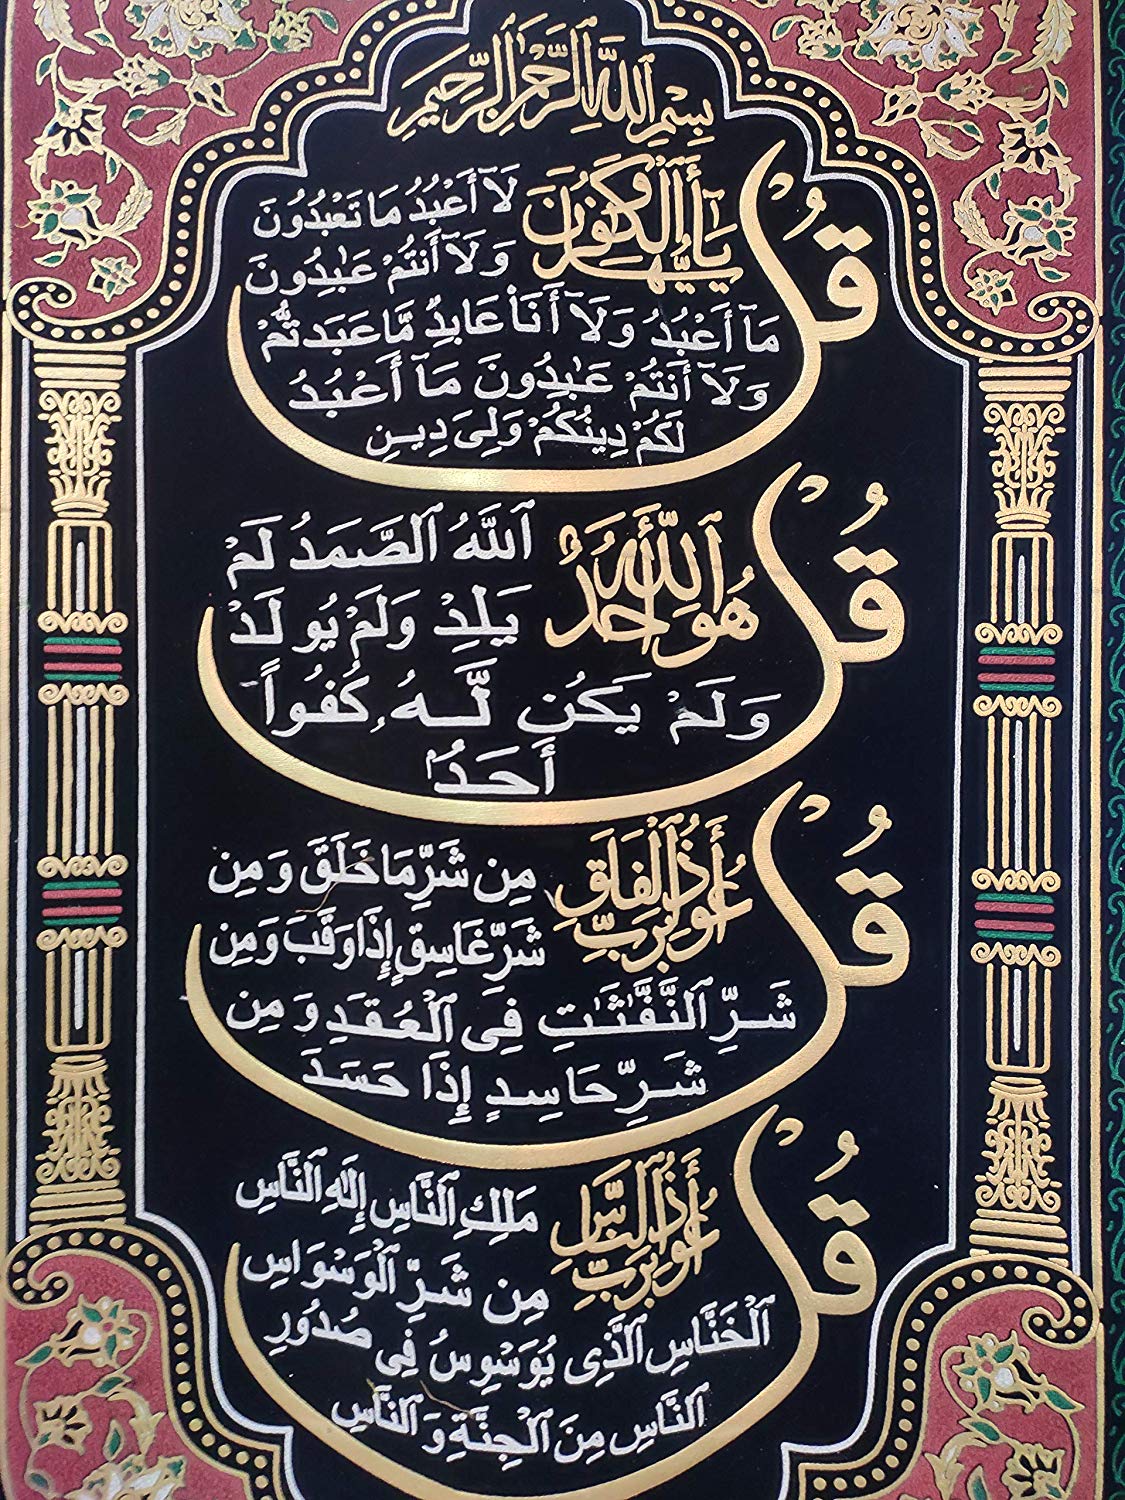 بِسْمِ ٱللَّهِ ٱلرَّحْمَٰنِ ٱلرَّحِيمِ
قُلْ يَٰٓأَيُّهَا ٱلْكَٰفِرُونَ لَآ أَعْبُدُ مَا تَعْبُدُونَ
وَلَآ أَنتُمْ عَٰبِدُونَ
مَآ أَعْبُدُ وَلَآ أَنَا۠ عَابِدٌ مَّا عَبَدتُّمْ
وَلَآ أَنتُمْ عَٰبِدُونَ مَآ أَعْبُدُ
لَكُمْ دِينُكُمْ وَلِىَ دِينِ
قُلْ هُوَ ٱللَّهُ أَحَدٌ ٱللَّهُ ٱلصَّمَدُ لَمْ
يَلِدْ وَلَمْ يُولَدْ
وَلَمْ يَكُن لَّهُۥ كُفُوًا
أَحَدٌۢ
قُلْ أَعُوذُ بِرَبِّ ٱلْفَلَقِ مِن شَرِّ مَا خَلَقَ وَمِن
شَرِّ غَاسِقٍ إِذَا وَقَبَ وَمِن
شَرِّ ٱلنَّفَّٰثَٰتِ فِى ٱلْعُقَدِ وَمِن
شَرِّ حَاسِدٍ إِذَا حَسَدَ
قُلْ أَعُوذُ بِرَبِّ ٱلنَّاسِ مَلِكِ ٱلنَّاسِ إِلَٰهِ ٱلنَّاسِ
مِن شَرِّ ٱلْوَسْوَاسِ
ٱلْخَنَّاسِ ٱلَّذِى يُوَسْوِسُ فِى صُدُورِ
ٱلنَّاسِ مِنَ ٱلْجِنَّةِ وَٱلنَّاسِ